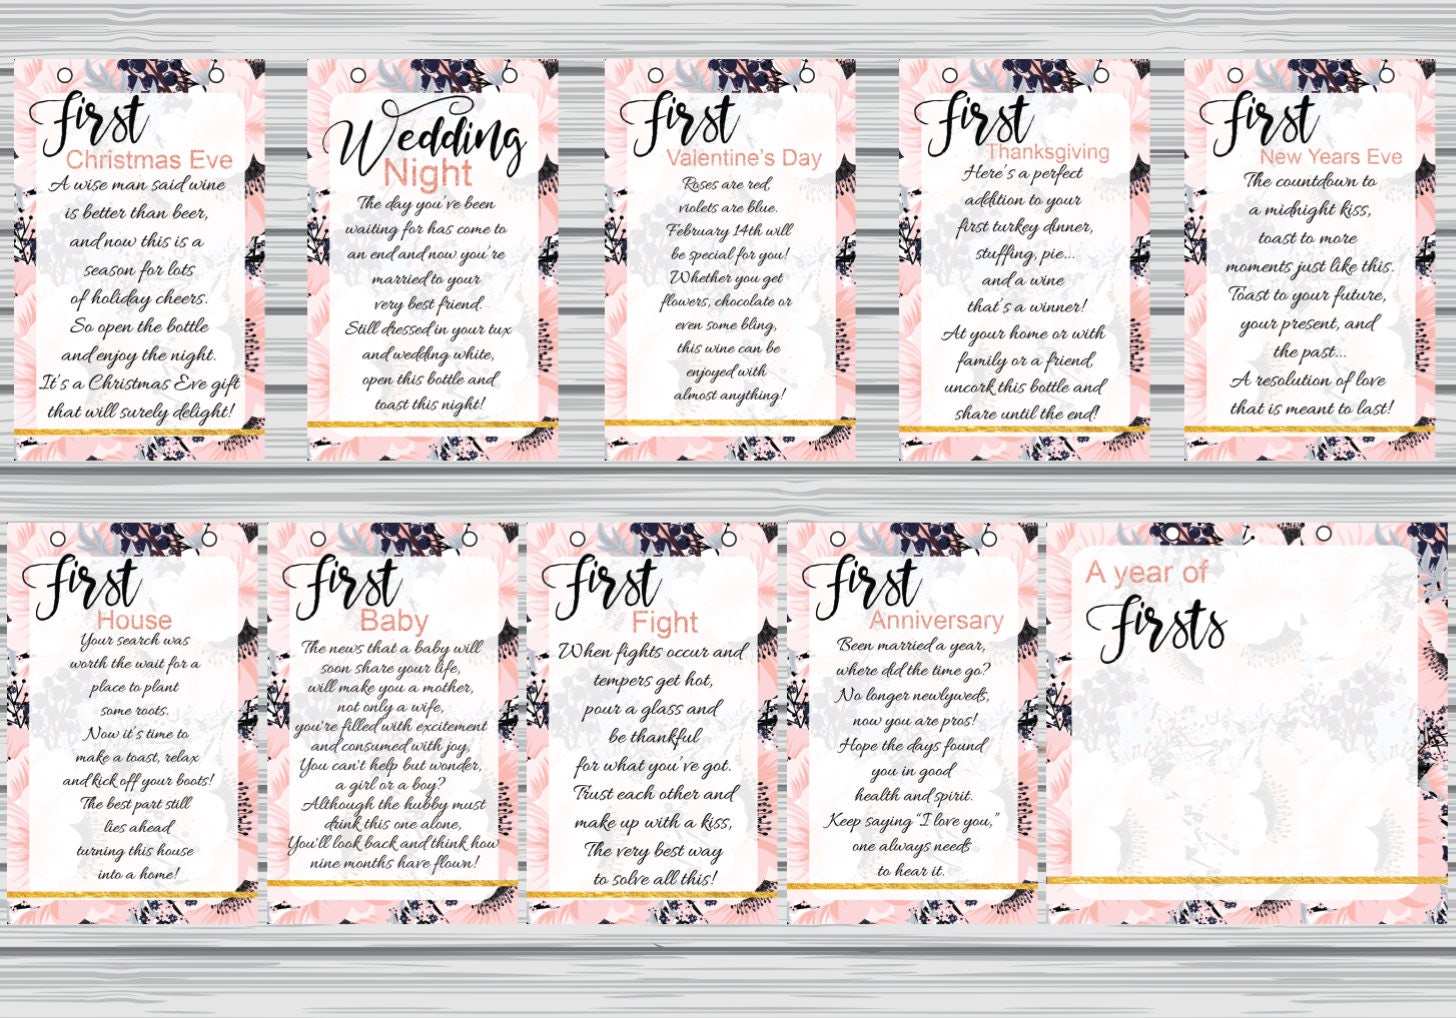 First
Christmas Eve
A wise man said wine
is better than beer,
and now this is a
season for lots
of holiday cheers.
So open the bottle
and enjoy the night.
It's a Christmas Eve gift
that will surely delight!
Wedding
Night
The day you've been
waiting for has come to
an end and now you're
married to your
very best friend.
Still dressed in your tux
and wedding white,
open this bottle and
toast this night!
First
Valentine's Day
Roses are red,
violets are blue.
February 14th will
be special for you!
Whether you get
flowers, chocolate or
even some bling,
this wine can be
enjoyed with
almost anything!
First
Thanksgiving
Here's a perfect
addition to your
first turkey dinner,
stuffing, pie...
and a wine
that's a winner!
At your home or with
family or a friend,
uncork this bottle and
share until the end!
First
New Years Eve
The countdown to
a midnight kiss,
toast to more
moments just like this.
Toast to your future,
your present, and
the past...
A resolution of love
that is meant to last!
First
House
Your search was
worth the wait for a
place to plant
some roots.
Now it's time to
make a toast, relax
and kick off your boots!
The best part still
lies ahead
turning this house
into a home!
First
Baby
The news that a baby will
soon share your life,
will make you a mother,
not only a wife,
you're filled with excitement
and consumed with joy,
You can't help but wonder,
a girl or a boy?
Although the hubby must
drink this one alone,
You'll look back and think how
nine months have flown!
First
Fight
When fights occur and
tempers get hot,
pour a glass and
be thankful
for what you've got.
Trust each other and
make up with a kiss,
The very best way
to solve all this!
First
Anniversary
Been married a year,
where did the time go?
No longer newlyweds,
now you are pros!
Hope the days found
you in good
health and spirit.
Keep saying "I love you,"
one always needs
to hear it.
A year of
Firsts